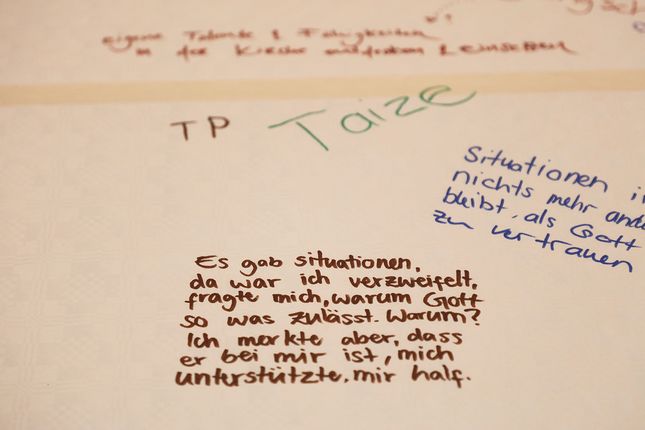 eigene Talente & Fähigkeiten
in der Kirche entdecken & einsetzen
TP
Taize
Situationen
nichts mehr
bleibt, als Gott
zu vertrauen
Es gab situationen,
da war ich verzweifelt,
fragte mich, warum Gott
so was zulässt. Warum?
Ich merkte aber, dass
er bei mir ist, mich
unterstützte, mir half.